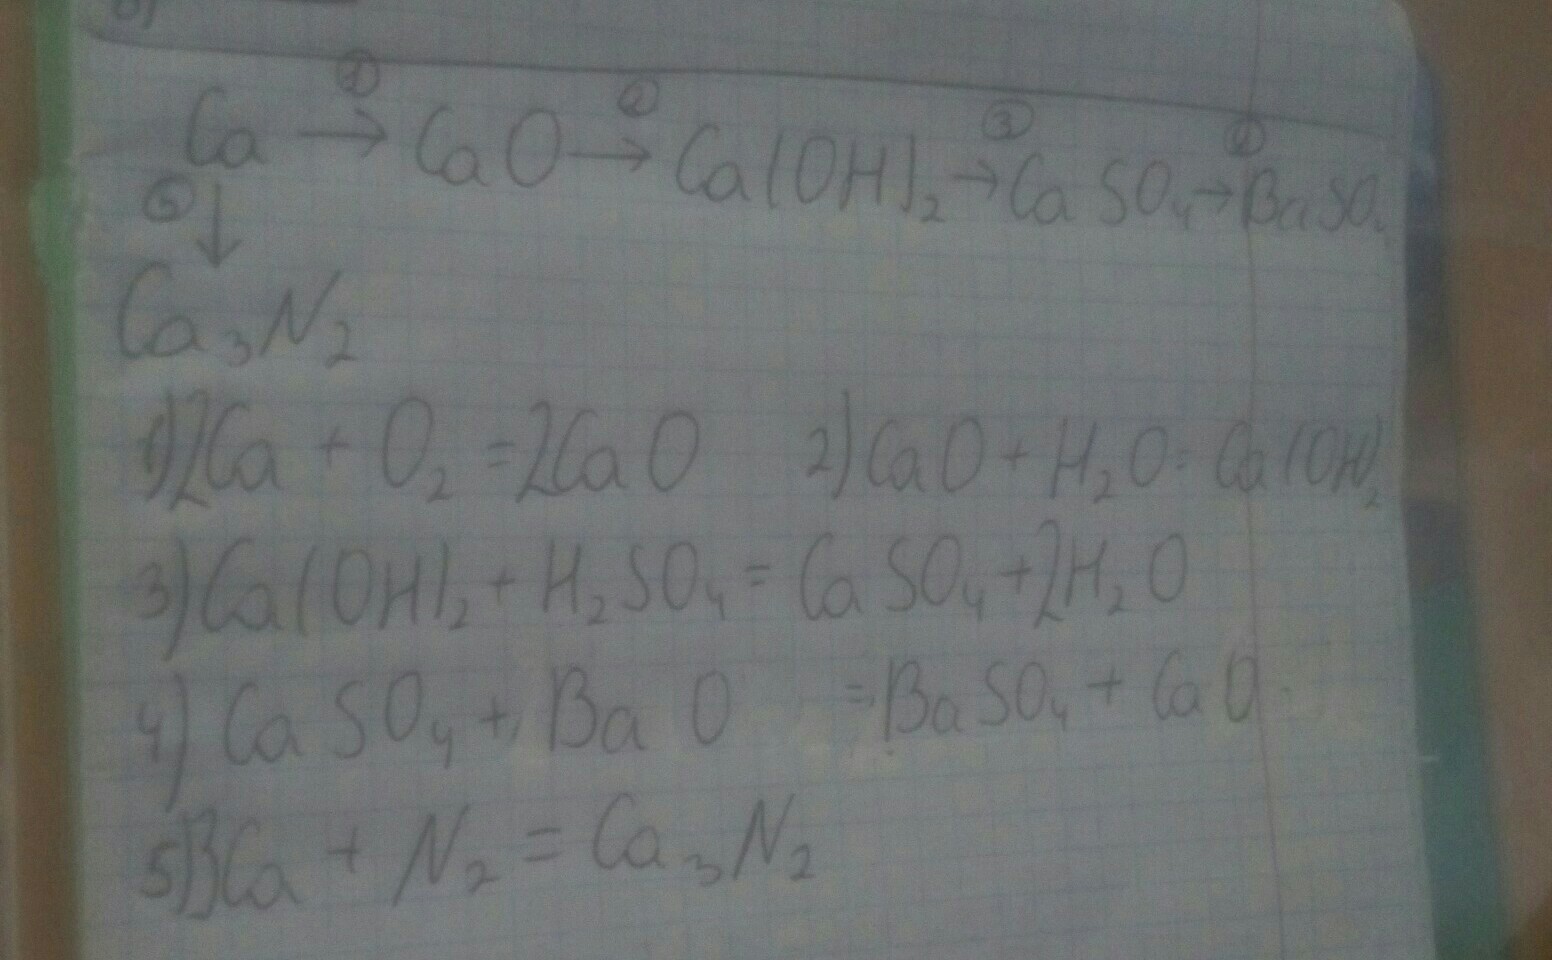 ①   ②   ③   ④
Ca → CaO → Ca(OH)₂ → CaSO₄ → BaSO₄
⑤ ↓
Ca₃N₂
1) 2Ca + O₂ = 2CaO   2) CaO + H₂O = Ca(OH)₂
3) Ca(OH)₂ + H₂SO₄ = CaSO₄ + 2H₂O
4) CaSO₄ + BaO = BaSO₄ + CaO
5) 3Ca + N₂ = Ca₃N₂